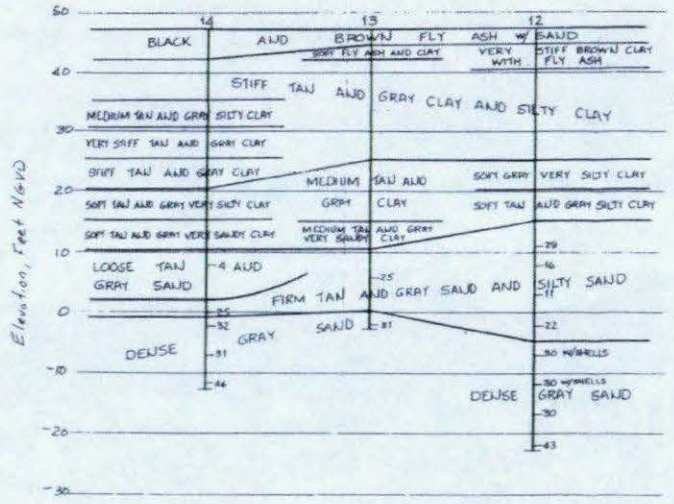 50
14
13
12
BLACK AND BROWN FLY ASH W/ SAND
SOFT FLY ASH AND CLAY
VERY STIFF BROWN CLAY
WITH FLY ASH
40
STIFF TAN AND GRAY CLAY AND SILTY CLAY
MEDIUM TAN AND GRAY SILTY CLAY
30
VERY STIFF TAN AND GRAY CLAY
STIFF TAN AND GRAY CLAY
MEDIUM TAN AND
GRAY CLAY
SOFT GRAY VERY SILTY CLAY
20
SOFT TAN AND GRAY VERY SILTY CLAY
SOFT TAN AND GRAY SILTY CLAY
SOFT TAN AND GRAY VERY SANDY CLAY
MEDIUM TAN AND GRAY
VERY SANDY CLAY
10
29
LOOSE TAN AND
GRAY SAND
4
25
16
11
FIRM TAN AND GRAY SAND AND SILTY SAND
0
25
32
31
22
DENSE GRAY SAND
31
46
30 W/SHELLS
-10
30 W/SHELLS
DENSE GRAY SAND
30
-20
43
-30
Elevation, Feet NGVD